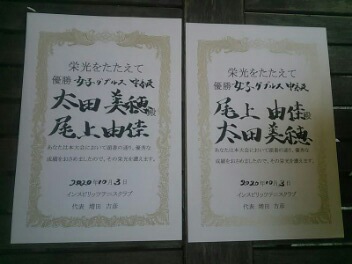 栄光をたたえて
優勝 女子ダブルス 中学の部
太田 美穂殿
尾上 由佳
あなたは本大会において頭書の通り、優秀な
成績をおさめましたので、その栄光を讃えます。
2020年10月3日
インスピリッツテニスクラブ
代表 増田 吉彦
栄光をたたえて
優勝 女子ダブルス
尾上 由佳殿
太田 美穂
あなたは本大会において頭書の通り、優秀な
成績をおさめましたので、その栄光を讃えます。
2020年10月3日
インスピリッツテニスクラブ
代表 増田 吉彦